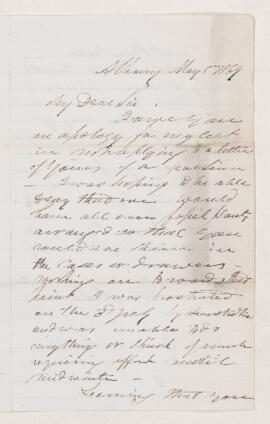 Albany May 1869
My Dear Sir.
I owe you
an apology for neglect
in not replying to a letter
of yours of a
— I was hoping to be able
say that we would
have all our fossil plants
arranged so that you
could see them in
the Cases or drawers —
Working on
I was prostrated
on the 3d July by
and was unable to do
anything or think of much
requiring effort until
midwinter —
Learning that you